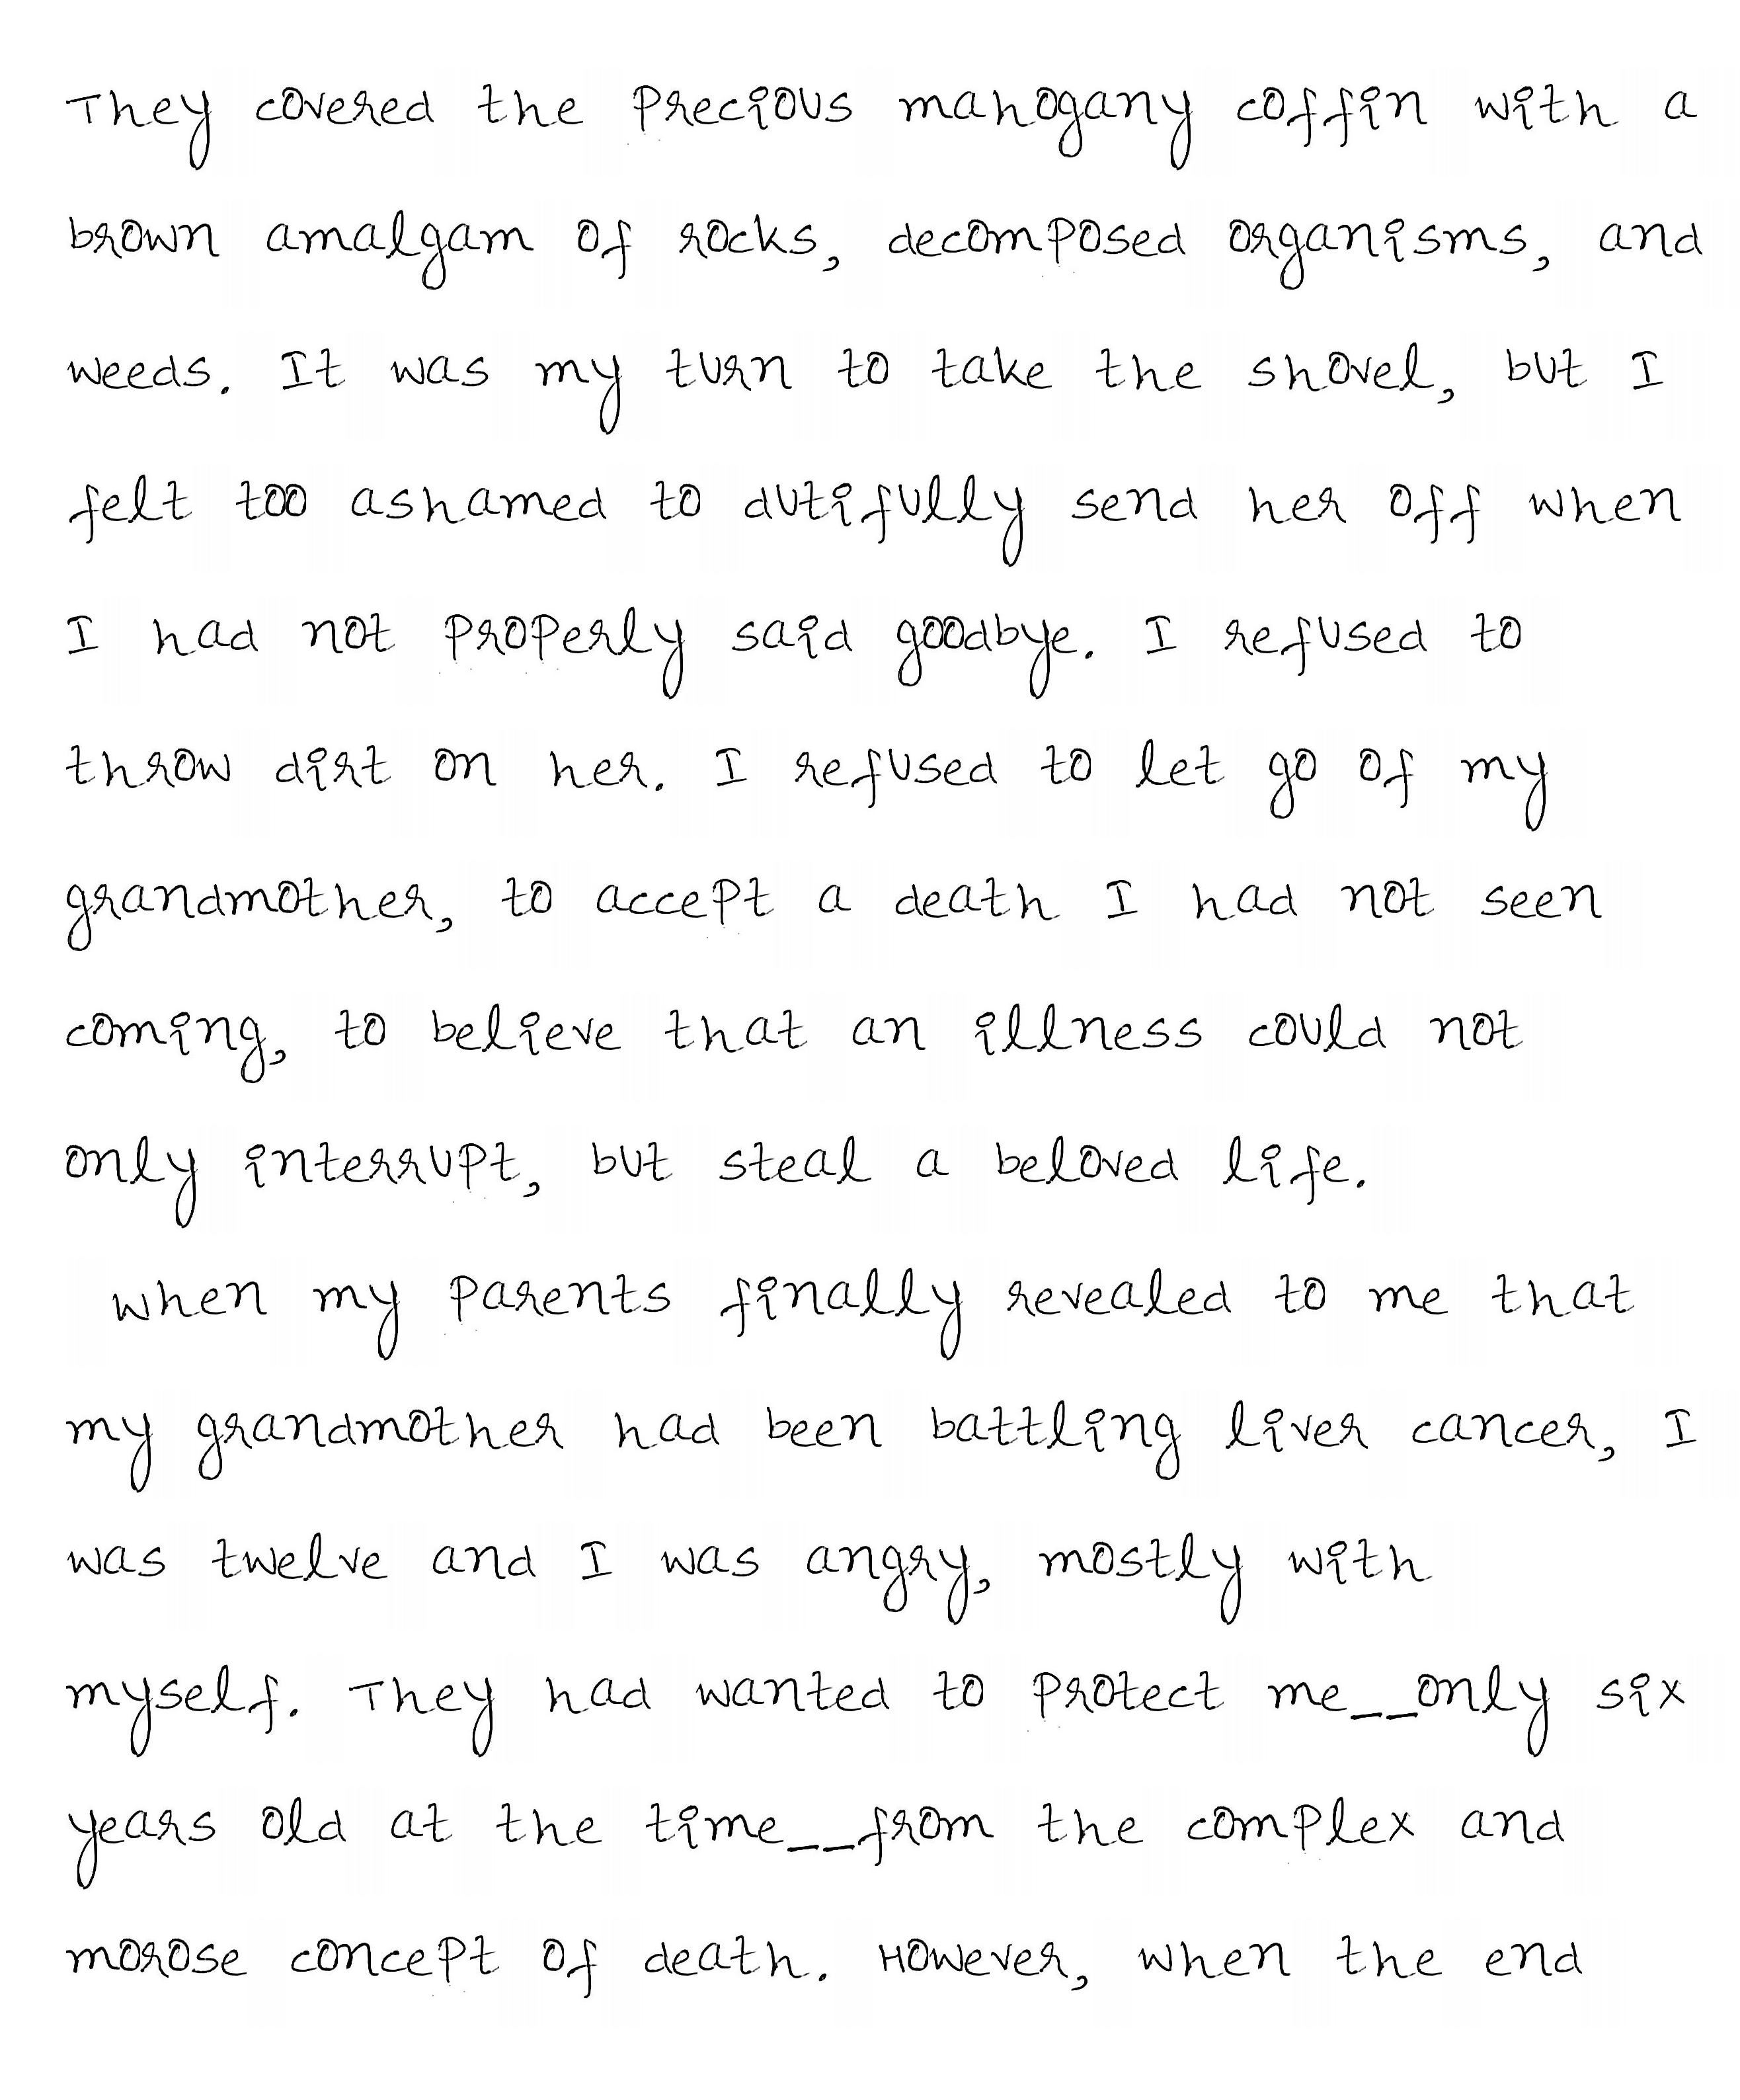 They covered the precious mahogany coffin with a
brown amalgam of rocks, decomposed organisms, and
weeds. It was my turn to take the shovel, but I
felt too ashamed to dutifully send her off when
I had not properly said goodbye. I refused to
throw dirt on her. I refused to let go of my
grandmother, to accept a death I had not seen
coming, to believe that an illness could not
only interrupt, but steal a beloved life.
When my parents finally revealed to me that
my grandmother had been battling liver cancer, I
was twelve and I was angry, mostly with
myself. They had wanted to protect me__only six
years old at the time__from the complex and
morose concept of death. However, when the end